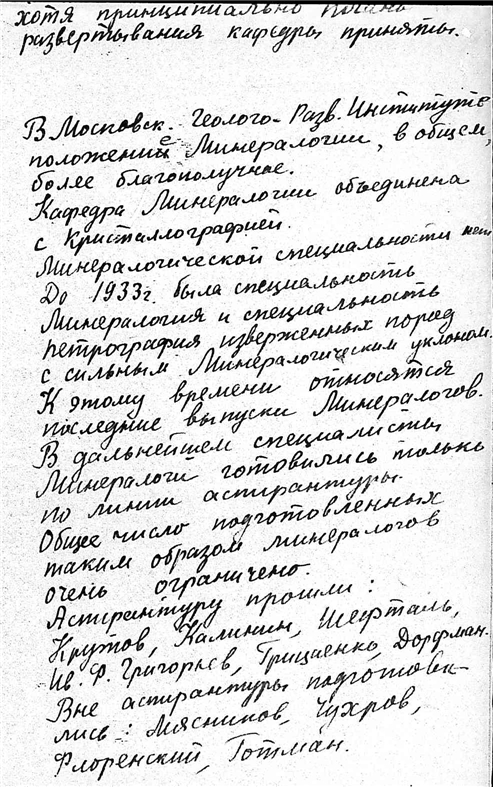 хотя принципиально планы
развертывания кафедры приняты.
В Московск. Геолого-Разв. Институте
положение Минералогии, в общем,
более благополучное.
Кафедра Минералогии объединена
с Кристаллографией.
Минералогической специальности нет
До 1933г. была специальность
Минералогия и специальность
петрография изверженных пород
с сильным Минералогическим уклоном.
К этому времени относятся
последние выпуски Минералогов.
В дальнейшем специалисты
Минералоги готовились только
по линии аспирантуры.
Общее число подготовленных
таким образом минералогов
очень ограничено.
Аспирантуру прошли:
Крутов, Калинин, Шефталь,
Ив. Ф. Григорьев, Грицаенко, Дорфман.
Вне аспирантуры подготови-
лись: Мясников, Чухров,
Флоренский, Готман.